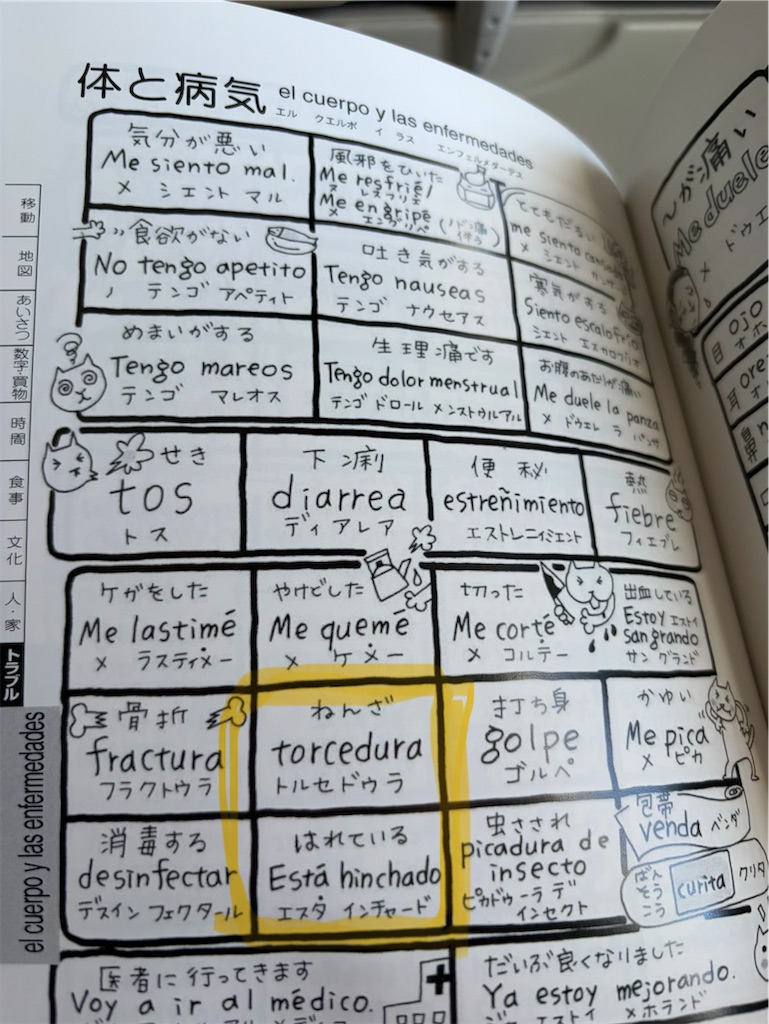 体と病気 el cuerpo y las enfermedades
エル クエルポ イ ラス エンフェルメダーデス
気分が悪い
Me siento mal.
メ シエント マル
風邪をひいた
Me resfrié/
メ レスフリエ
Me engripé
メ エングリペ
とてもだるい
me siento
メ シエント
食欲がない
No tengo apetito
ノ テンゴ アペティト
吐き気がする
Tengo nauseas
テンゴ ナウセアス
寒気がする
Siento escalofrío
シエント エスカロフリオ
めまいがする
Tengo mareos
テンゴ マレオス
生理痛です
Tengo dolor menstrual
テンゴ ドロール メンストゥルアル
お腹のあたりが痛い
Me duele la panza
メ ドゥエレ ラ パンサ
せき
tos
トス
下痢
diarrea
ディアレア
便秘
estreñimiento
エストレニィミエント
熱
fiebre
フィエブレ
ケガをした
Me lastimé
メ ラスティメー
やけどした
Me quemé
メ ケメー
切った
Me corté
メ コルテー
出血している
Estoy エストイ
sangrando
サン グランド
骨折
fractura
フラクトゥラ
ねんざ
torcedura
トルセドゥラ
打ち身
golpe
ゴルペ
かゆい
Me pica
メ ピカ
消毒する
desinfectar
デスイン フェクタール
はれている
Está hinchado
エスタ インチャード
虫さされ
picadura de
insecto
ピカドゥーラ デ
インセクト
包帯
venda ベンダ
ばんそうこう
curita クリタ
医者に行ってきます
Voy a ir al médico.
だいぶ良くなりました
Ya estoy mejorando.
ジャ エストイ メホランド
移動
地図
あいさつ
数字・買物
時間
食事
文化
人・家
トラブル
el cuerpo y las enfermedades
〜が痛い
Me duele
メ ドゥエ
目 ojo
オホ
耳 ore
オレ
鼻